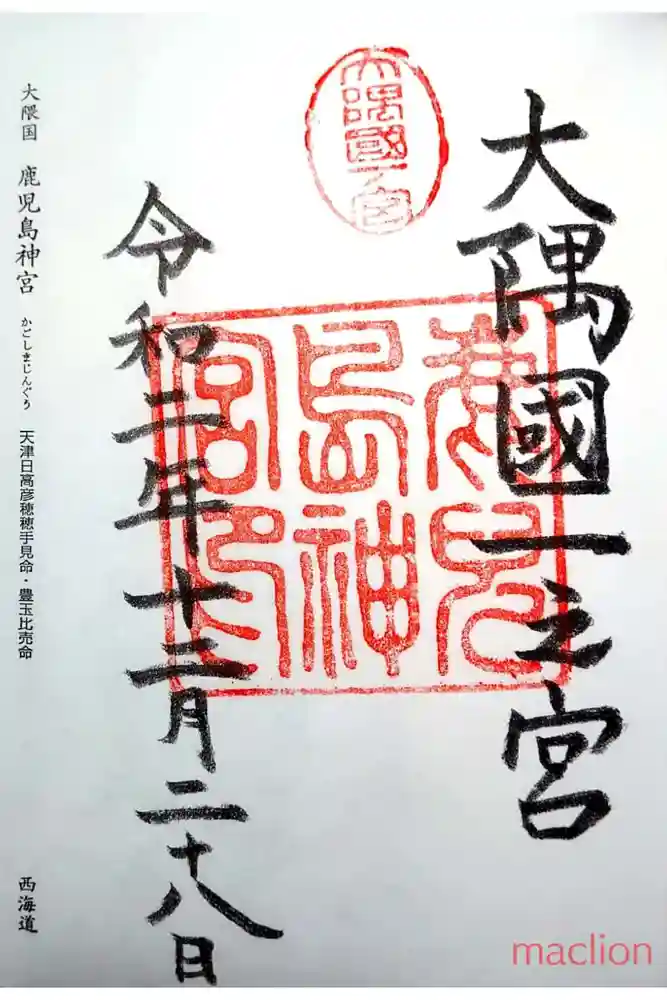 大隅國一之宮
大隅國一宮
鹿兒
島神
宮印
令和二年十二月二十八日
大隈国 鹿児島神宮 かごしまじんぐう 天津日高彦穂穂手見命・豊玉比売命
西海道
maclion